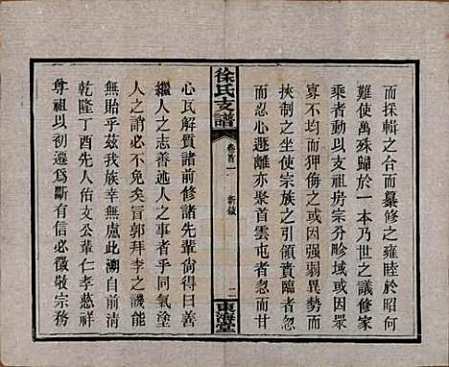 而採輯之合而纂修之雍睦於昭何
難使萬殊歸於一本乃世之議修家
乘者動以支祖房宗分畛域或因眾
寡不均而狎侮之或因强弱異勢而
挾制之坐使宗族之引領責臨者忽
而忍心遐離亦聚首雲屯者忽而甘
徐氏支譜
卷首一
新敍
二
東海堂
心瓦解質諸前修諸先輩尙得曰善
繼人之志善述人之事者乎同氣塗
人之誚必不免矣冒郭拜李之譏能
無貽乎兹我族幸無慮此溯自前清
乾隆丁酉先人佑文公輩仁孝慈祥
尊祖以初遷爲斷有信必徵敬宗務